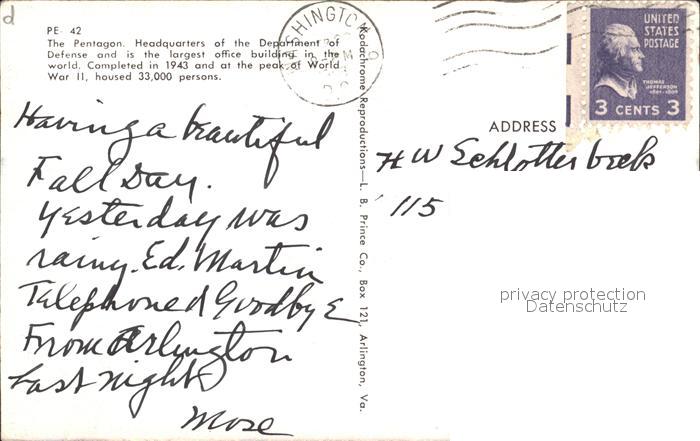 d
PE 42
The Pentagon. Headquarters of the Department of
Defense and is the largest office building in the
world. Completed in 1943 and at the peak of World
War II, housed 33,000 persons.
WASHINGTON
D.C.
UNITED
STATES
POSTAGE
THOMAS
JEFFERSON
1801-1809
3 CENTS 3
Kodachrome Reproductions—L. B. Prince Co., Box 121, Arlington, Va.
ADDRESS
Having a beautiful
Fall Day.
Yesterday was
rainy. Ed. Martin
Telephoned Goodbye
From Arlington
Last night
Mose
H W Schlotterbeck
115
privacy protection
Datenschutz